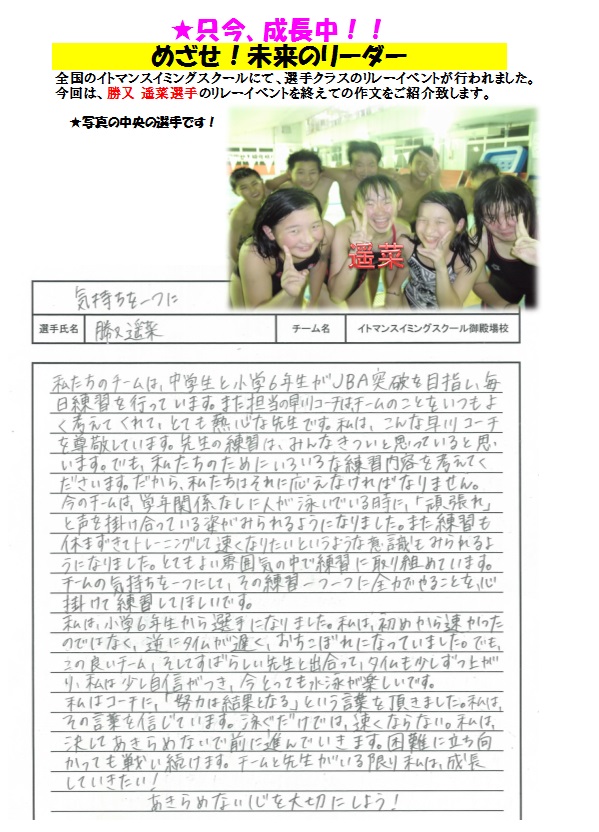 ★只今、成長中！！
めざせ！未来のリーダー
全国のイトマンスイミングスクールにて、選手クラスのリレーイベントが行われました。
今回は、勝又 遥菜選手のリレーイベントを終えての作文をご紹介致します。
★写真の中央の選手です！
遥菜
気持ちを一つに
選手氏名 勝又遥菜 チーム名 イトマンスイミングスクール御殿場校
私たちのチームは、中学生と小学6年生がJBA突破を目指し、毎
日練習を行っています。また担当の早川コーチはチームのことをいつもよ
く考えてくれて、とても熱心な先生です。私は、こんな早川コーチ
を尊敬しています。先生の練習は、みんなきついと思っていると思
います。でも、私たちのためにいろいろな練習内容を考えてく
ださいます。だから、私たちはそれに応えなければなりません。
今のチームは、学年関係なしに人が泳いでいる時に、「頑張れ」
と声を掛け合っている姿がみられるようになりました。また練習も
休まずきてトレーニングして速くなりたいというような意識もみられるよ
うになりました。とてもよい雰囲気の中で練習に取り組めています。
チームの気持ちを一つにして、その練習一つ一つに全力でやることを、心
掛けて練習してほしいです。
私は、小学6年生から選手になりました。私は、初めから速かった
のではなく、逆にタイムが遅く、おちこぼれになっていました。でも、
この良いチーム、そしてすばらしい先生と出合って、タイムも少しずつ上が
り、私は少し自信がつき、今とっても水泳が楽しいです。
私はコーチに、「努力は結果となる」という言葉を頂きました。私は、
その言葉を信じています。泳ぐだけでは、速くならない。私は、
決してあきらめないで前に進んでいきます。困難に立ち向
かっても戦い続けます。チームと先生がいる限り私は、成長
していきたい！
あきらめない心を大切にしよう！